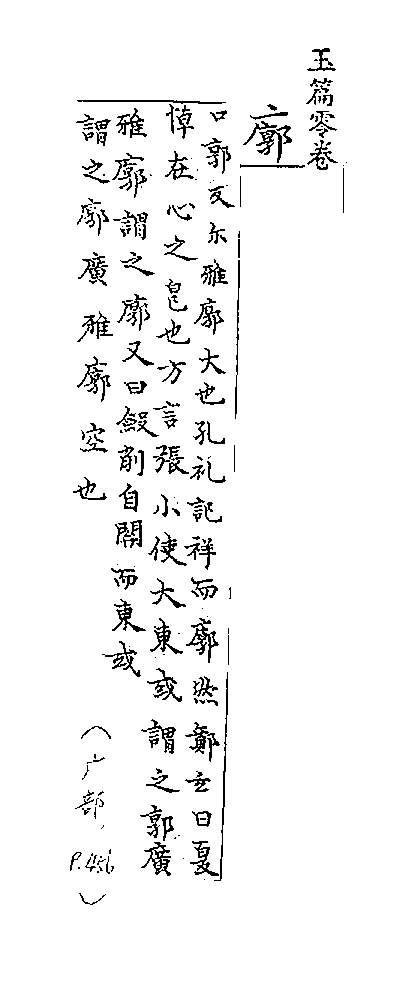 玉篇零卷
廓
口郭反尔雅廓大也孔礼記祥而廓然鄭玄曰夏
悼在心之皃也方言張小使大東或謂之郭廣
雅廓謂之廓又曰劔削自關而東或
謂之廓廣雅廓空也
(广部, P.456)